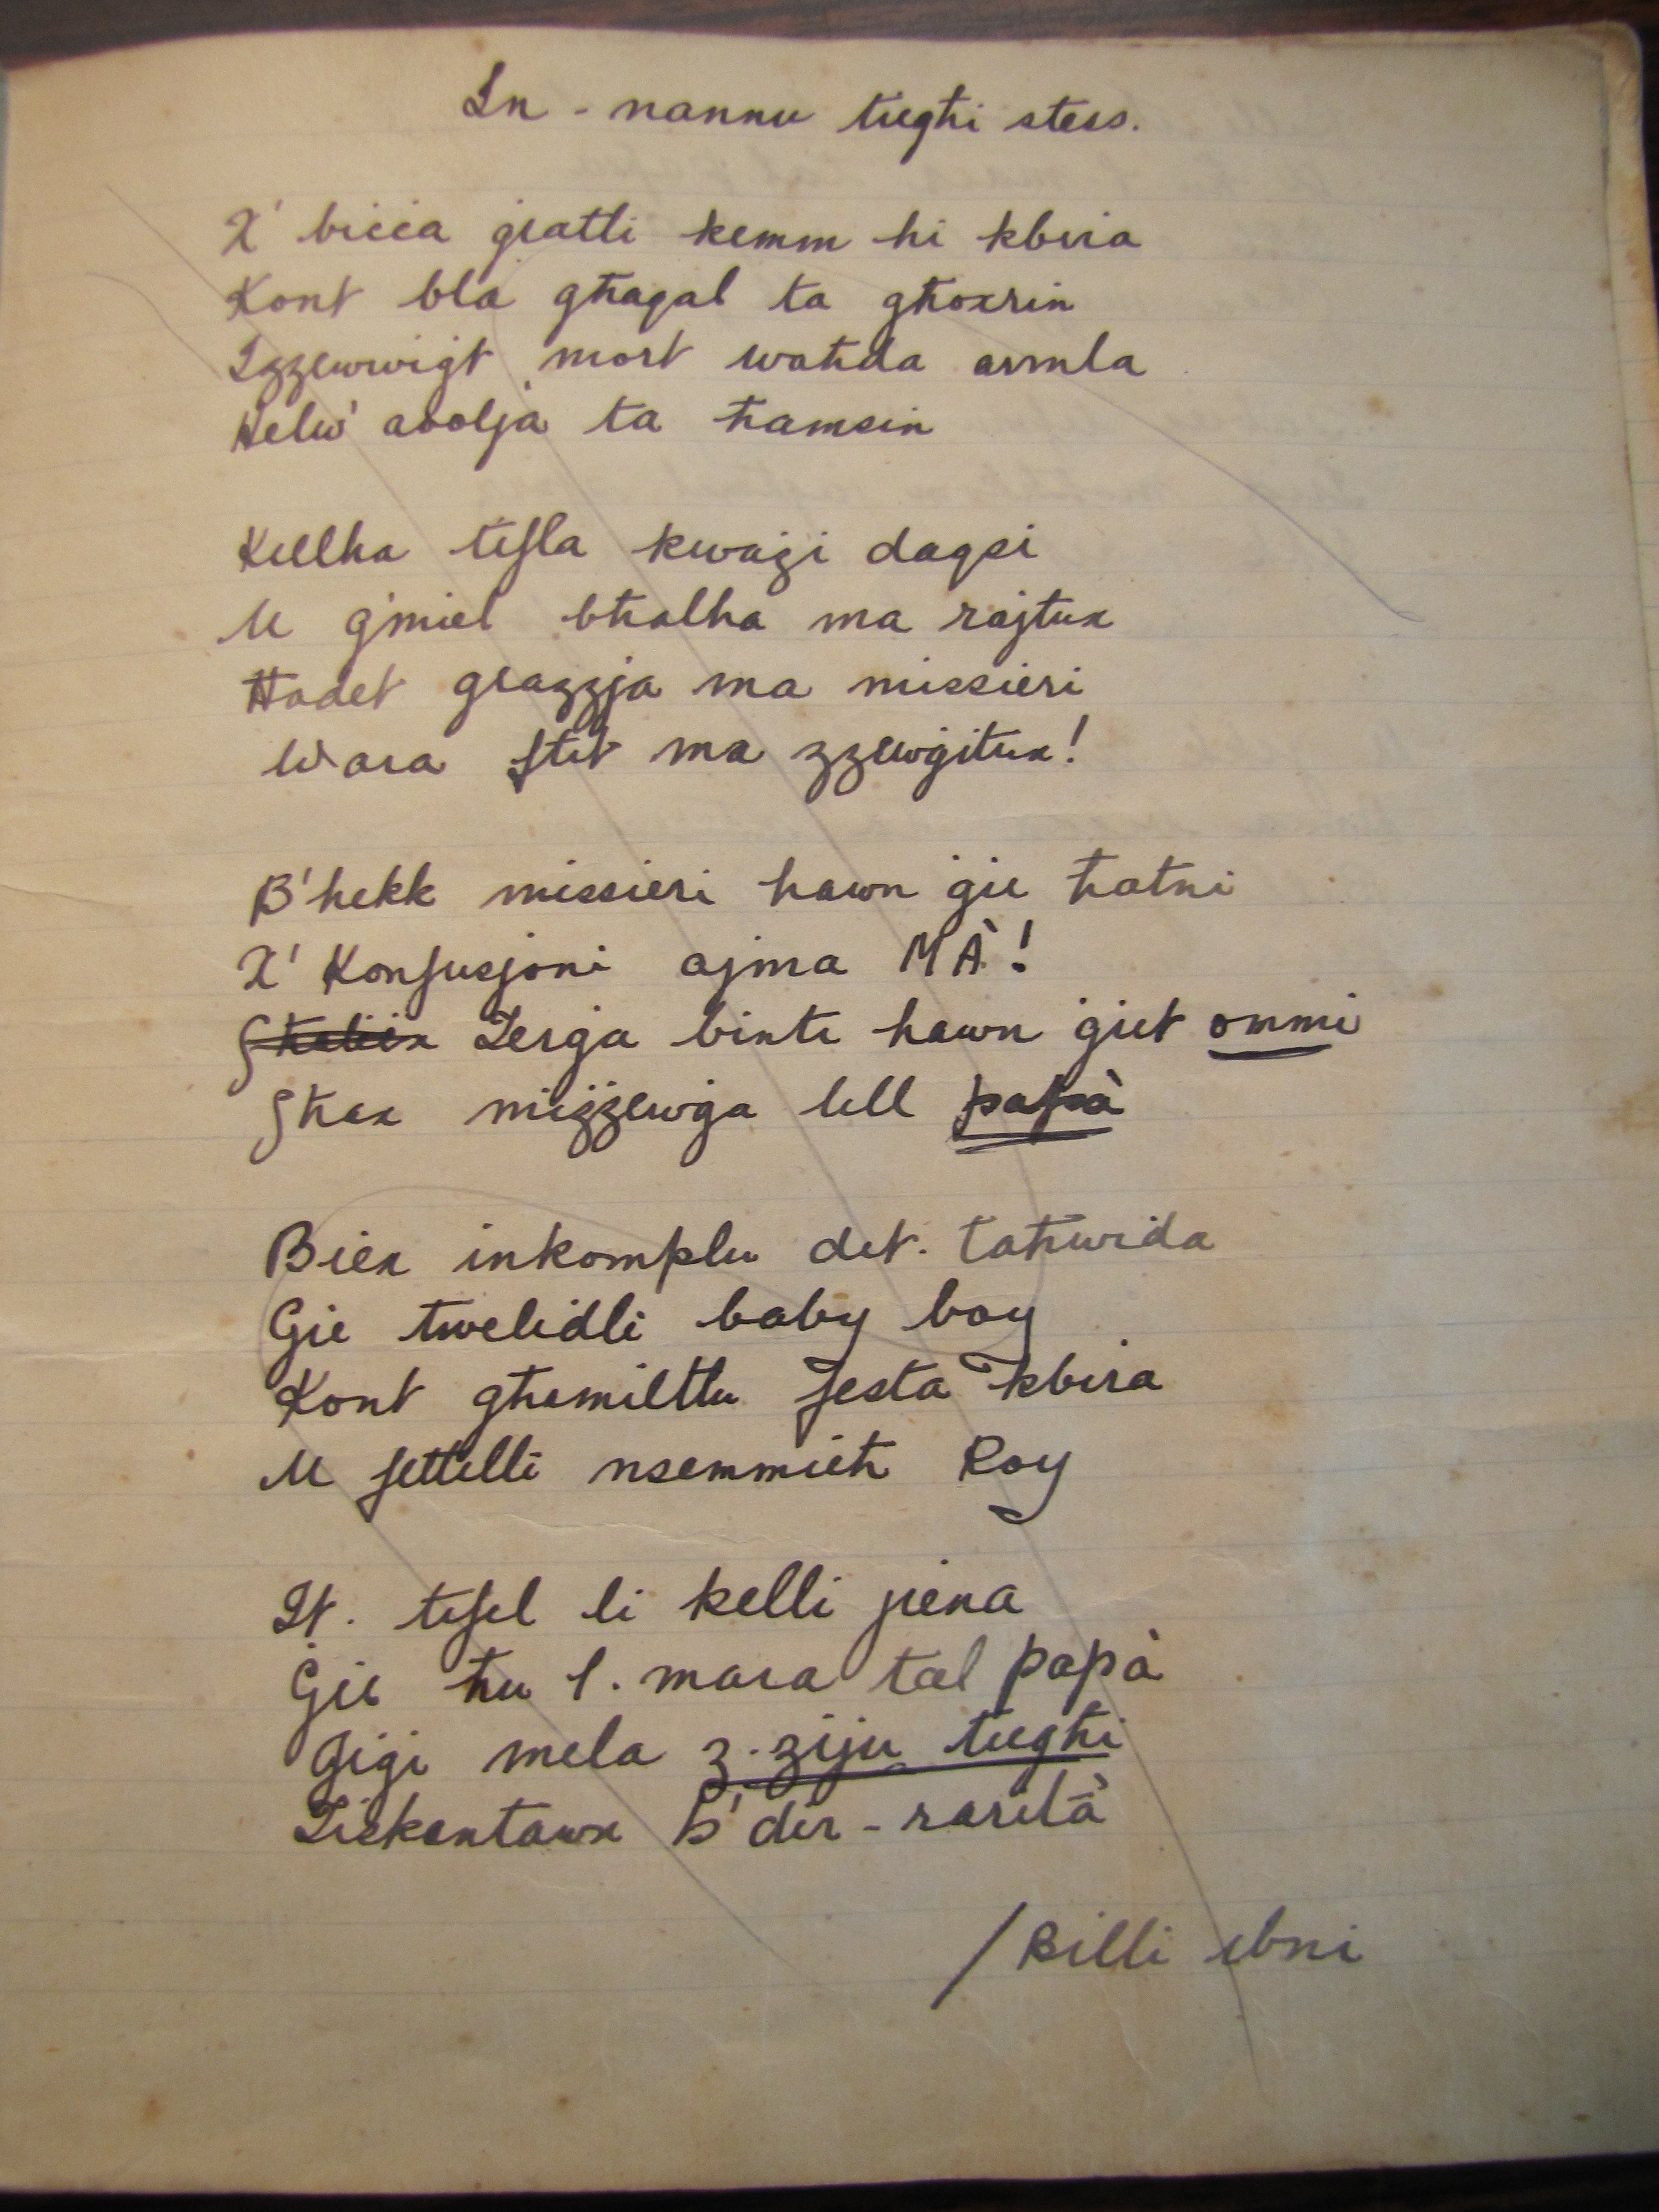 In-nannu tieghi stess.
X' bicca ġratli kemm hi kbira
Kont bla għaqal ta għoxrin
Iżżewwigt mort waħda armla
Helu' adolja ta ħamsin
Kellha tifla kważi daqsi
U ġmiel bħalha ma rajtux
Ħadet grazzja ma missieri
Wara ftit ma żżewġitux!
B'hekk missieri hawn ġie ħatni
X' Konfusjoni ajma MÀ!
Terġa binti hawn ġiet ommi
Għax miżżewġa lill papà
Biex inkomplu dit. taħwida
Gie twelidli baby boy
Kont għamiltlu festa kbira
U fettilli nsemmieħ Roy
It. tifel li kelli jiena
Ġie ħu l. mara tal papà
Jiġi mela z. ziju tiegħi
Tiskantawx b' dir-rarità
/Billi ibni